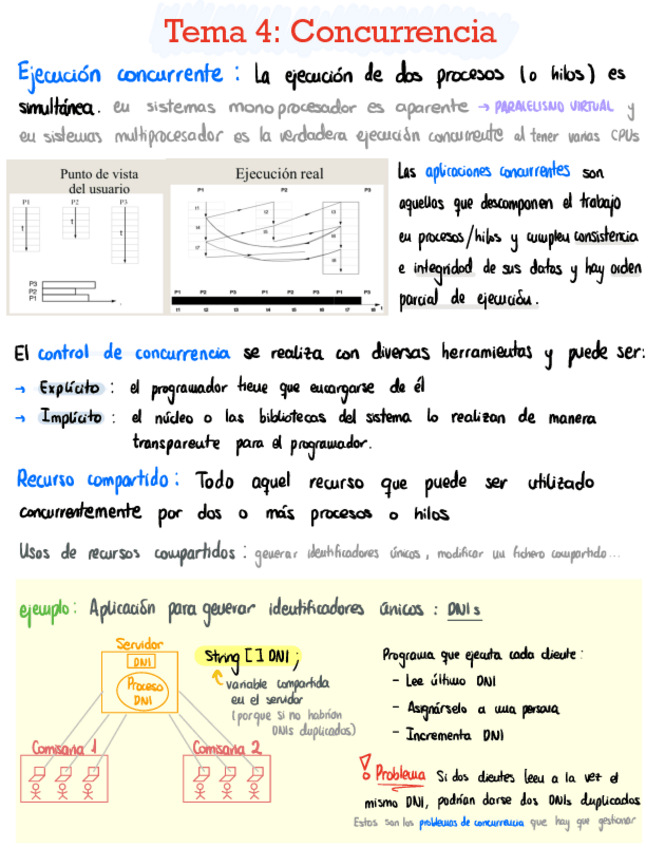 Tema 4: Concurrencia
Ejecución concurrente: La ejecución de dos procesos (o hilos) es
simultánea. en sistemas monoprocesador es aparente → PARALELISMO VIRTUAL y
en sistemas multiprocesador es la verdadera ejecución concurrente al tener varias CPUs
Punto de vista
del usuario
P1 P2 P3
t t t
P3
P2
P1
Ejecución real
P1 P2 P3
P1 P2 P3 P1 P2 P3 P1 P3
Las aplicaciones concurrentes son
aquellas que descomponen el trabajo
en procesos/hilos y cumplen consistencia
e integridad de sus datos y hay orden
parcial de ejecución.
El control de concurrencia se realiza con diversas herramientas y puede ser:
→ Explícito: el programador tiene que encargarse de él
→ Implícito: el núcleo o las bibliotecas del sistema lo realizan de manera
transparente para el programador.
Recurso compartido: Todo aquel recurso que puede ser utilizado
concurrentemente por dos o más procesos o hilos
Usos de recursos compartidos: generar identificadores únicos, modificar un fichero compartido...
ejemplo: Aplicación para generar identificadores únicos: DNIs
Servidor
DNI
Proceso
DNI
Comisaría 1
Comisaría 2
String [] DNI;
variable compartida
en el servidor
(porque si no habrían
DNIs duplicados)
Programa que ejecuta cada cliente:
- Lee último DNI
- Asignárselo a una persona
- Incrementa DNI
! Problema Si dos clientes leen a la vez el
mismo DNI, podrían darse dos DNIs duplicados
Estos son los problemas de concurrencia que hay que gestionar